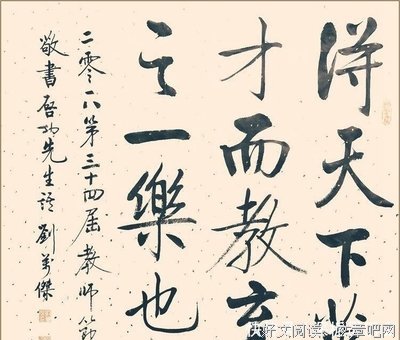 得天下英
才而教育
之一樂也
二零一八第三十四届教師節
敬書启功先生語 劉萬傑
好文阅读 章吧网